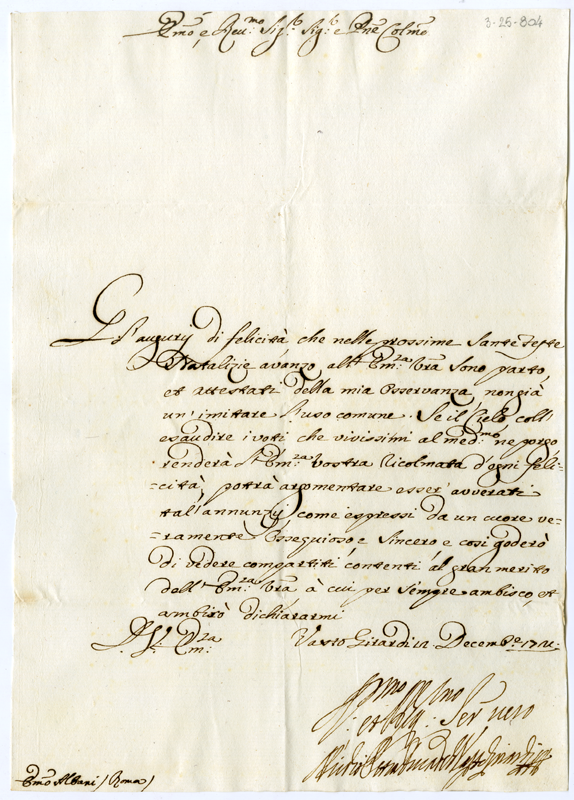 Emo, e Reu:mo Sig:r Sig:r e Pne Colmo
3-25-804
Gl'augurij di felicità che nelle prossime Sante feste
Natalizie avanzo all' Em:za Vra sono parto,
et attestati della mia osservanza, non già
un' imitare l'uso comune. Se il Cielo coll'
esaudire i voti che vivissimi al med:mo ne porgo
renderà l' Em:za Vostra ricolmata d'ogni feli=
=cità, potrà argomentare esser' avverati
tall' annunzij come espressi da un cuore ve=
=ramente ossequioso e sincero e così goderò
di vedere compartiti contenti al gran merito
dell' Em:za Vra à cui per sempre ambisco, et
ambirò dichiararmi
Vasto Girardi 12 Decembre
mo
Ser vero
Emo Albani (Roma)